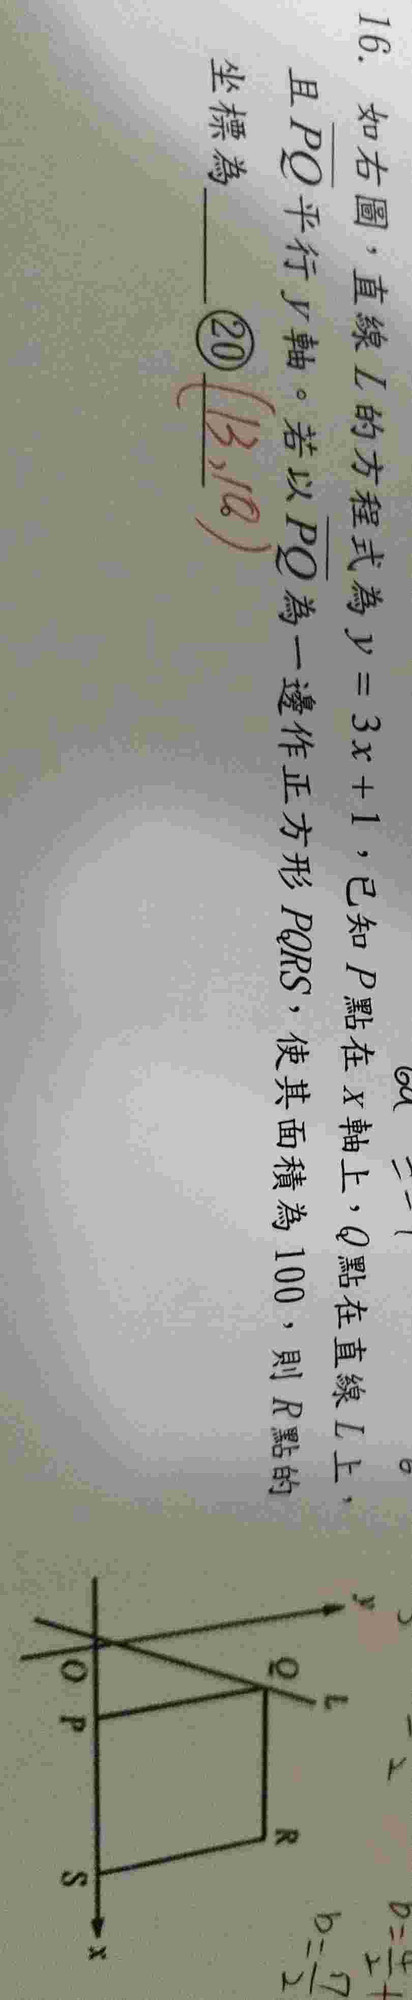 16. 如右圖，直線 L 的方程式為 y = 3x + 1，已知 P 點在 x 軸上，Q 點在直線 L 上，
且 PQ 平行 y 軸。若以 PQ 為一邊作正方形 PQRS，使其面積為 100，則 R 點的
坐標為 ______ ⑳ (13,10)
y
L
Q
R
O
P
S
x
b=7/2